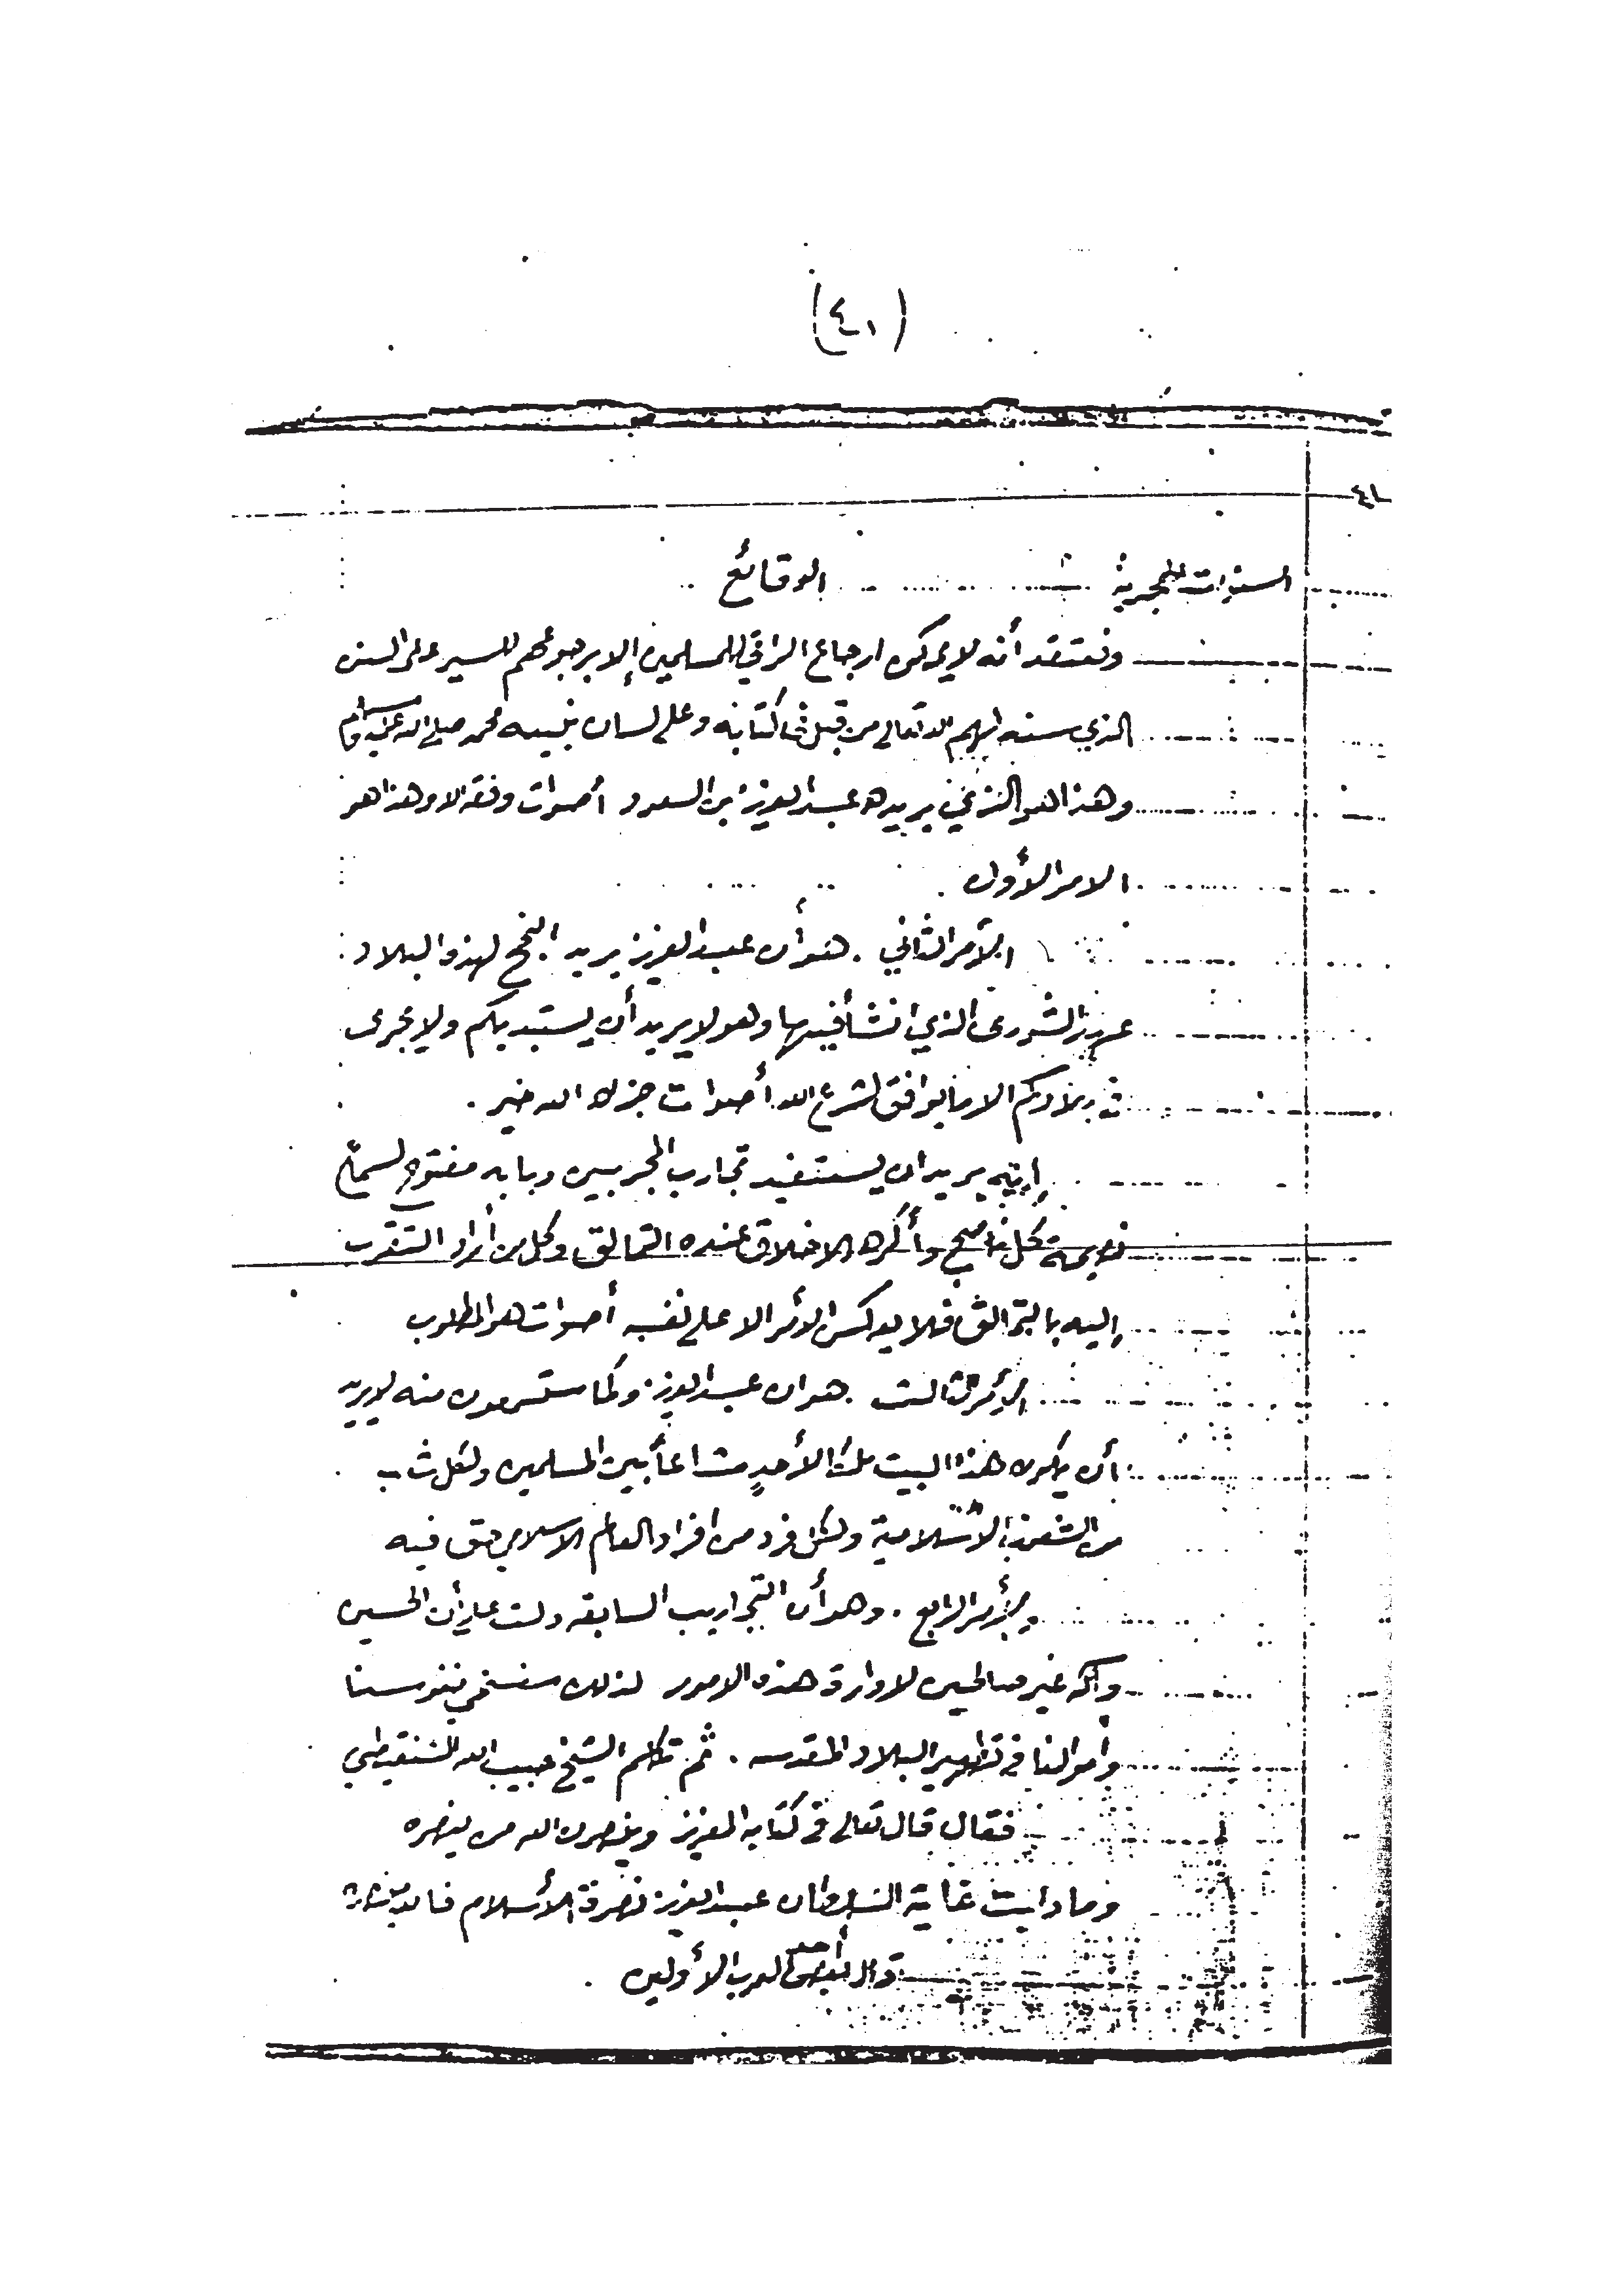 (٤٠)
٤١
السنوات الهجرية الوقائع
ونعتقد أنه لا يمكن ارجاع الراقي للمسلمين إلا برجوعهم للسير على السنن
الذي سنه لهم الله تعالى من قبل في كتابه وعلى لسان نبيه محمد صلى الله عليه وسلم
وهذا هو الذي يريده عبد العزيز بن السعود أصوات وفقه الله وهذا هو
الامر الأول
الأمر الثاني . هو أن عبد العزيز يريد النجح لهذه البلاد
عن الشورى الذي انشأ فيها وهو لا يريد أن يستبد بكم ولا يجرى
في بلادكم الا ما يوافق لشرع الله أصوات جزاه الله خير .
إنه يريد ان يستفيد تجارب المجربين وبابه مفتوح لسماع
نصيحة كل ناصح وأكره الاخلاق عنده التمالق وكل من أراد التقرب
إليه بالتمالق فلا يعكس الأمر الا على نفسه أصوات هو المطلوب
الأمر الثالث . هو ان عبد العزيز وكما ستسمعون منه لا يريد
أن يكون هذا البيت ملكا لأحدٍ مشاعاً بين المسلمين ولكل شعب
من الشعوب الاسلامية ولكل فرد من افراد العالم الاسلامي حق فيه
والأمر الرابع . وهو أن التجاريب السابقه دلت على أن الحسين
وآله غير صالحين لادارة هذه الامور لذلك سنضحي بنفوسنا
وأموالنا في تطهير البلاد المقدسه . ثم تكلم الشيخ حبيب الله الشنقيطي
فقال قال تعالى في كتابه العزيز ولينصرن الله من ينصره
وما دامت غاية السلطان عبد العزيز نصرة الأسلام فالله
قال العرب الأولين .